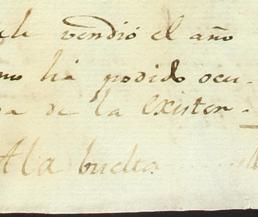 vendió el año
ha podido ocu-
de la exister-
A la buelta